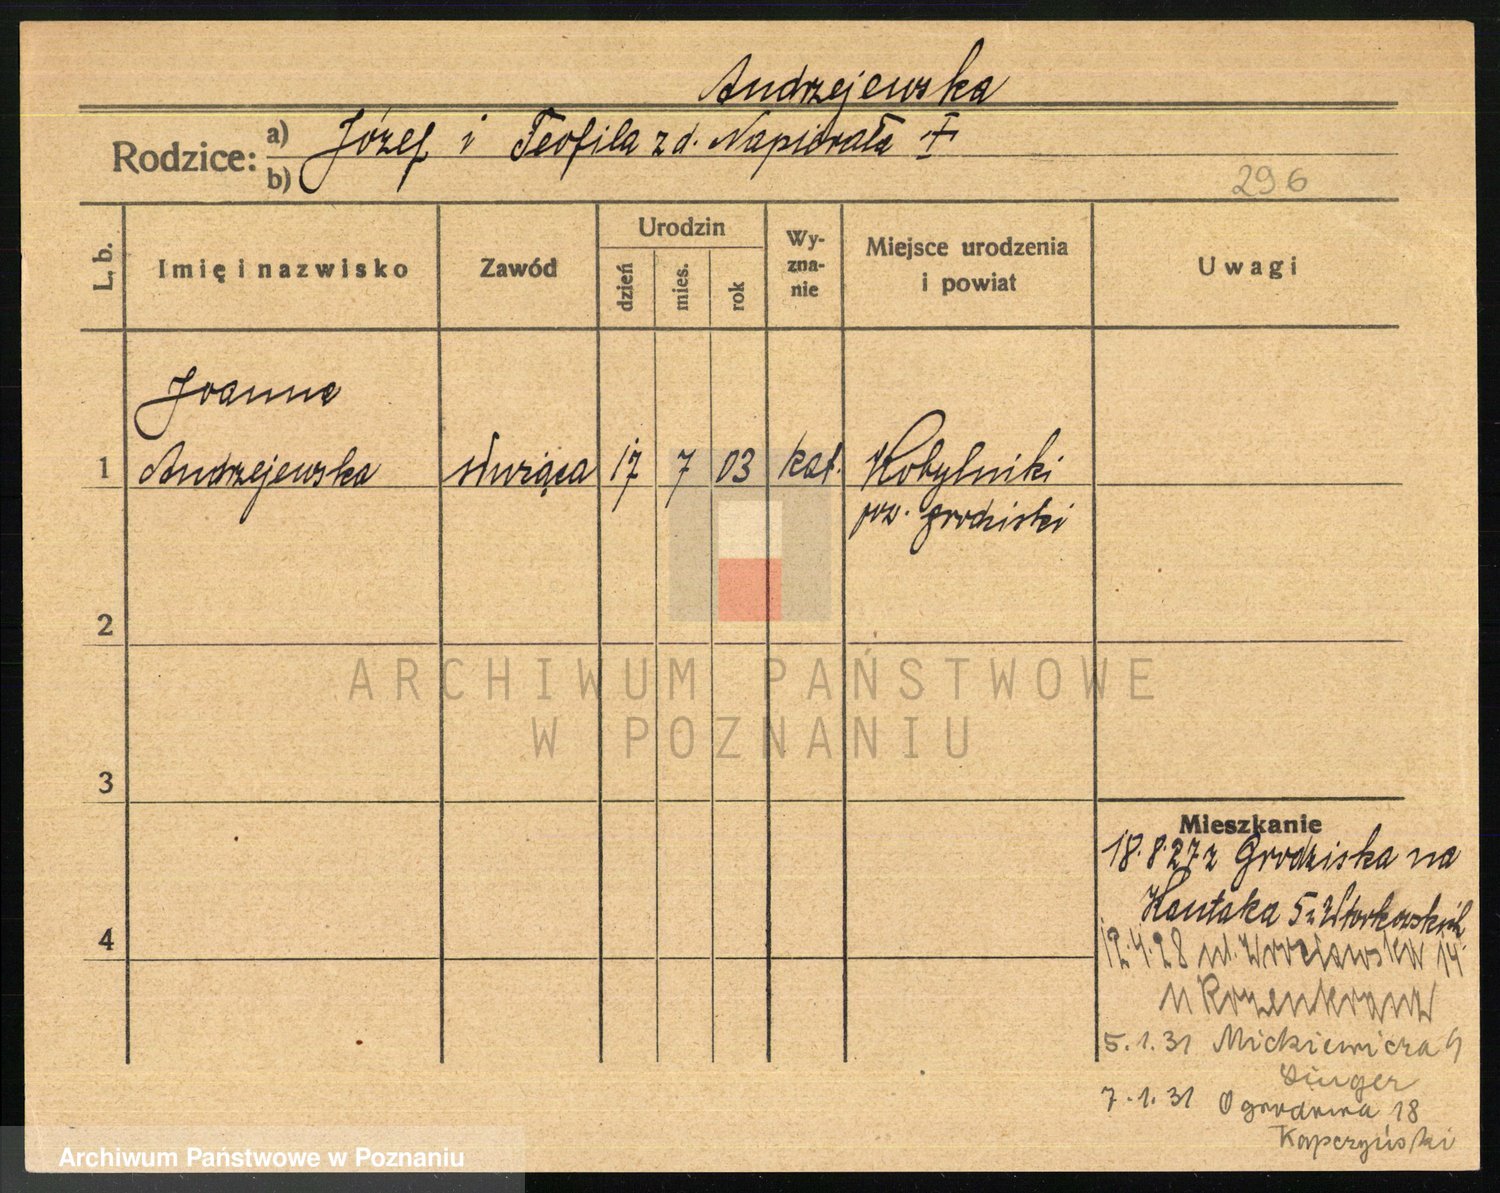 Andrzejewska
Rodzice: a) Józef i Teofila z d. Napierała
b)
296
L. b.
Imię i nazwisko
Zawód
Urodzin
dzień
mies.
rok
Wy-
zna-
nie
Miejsce urodzenia
i powiat
Uwagi
Joanna
1 Andrzejewska służąca 17 7 03 kat. Kobylniki
pow. grodziski
2
3
4
Mieszkanie
18.8.27 z Grodziska na
Kantaka 5
12.4.28 ul. Wrocławska 14
u Rozenkranz
5.1.31 Mickiewicza
Singer
7.1.31 Ogrodowa 18
Kapczyński
ARCHIWUM PAŃSTWOWE
W POZNANIU
Archiwum Państwowe w Poznaniu